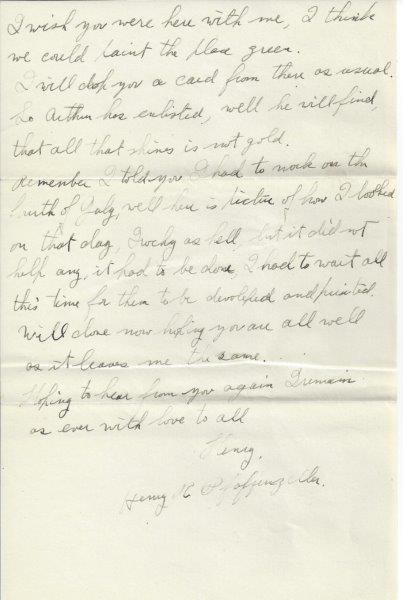 I wish you were here with me, I think
we could paint the place green.
I will drop you a card from there as usual.
So Arthur has enlisted, well he will find,
that all that shines is not gold.
Remember I told you I had to work on the
fourth of July, well here is picture of how I looked
on that day, as hell, but it did not
help any, it had to be done, I had to wait all
this time for them to be devolified and printed.
Will close now hoping you are all well
as it leaves me the same.
Hoping to hear from you again I remain
as ever with love to all
Henry.
Henry